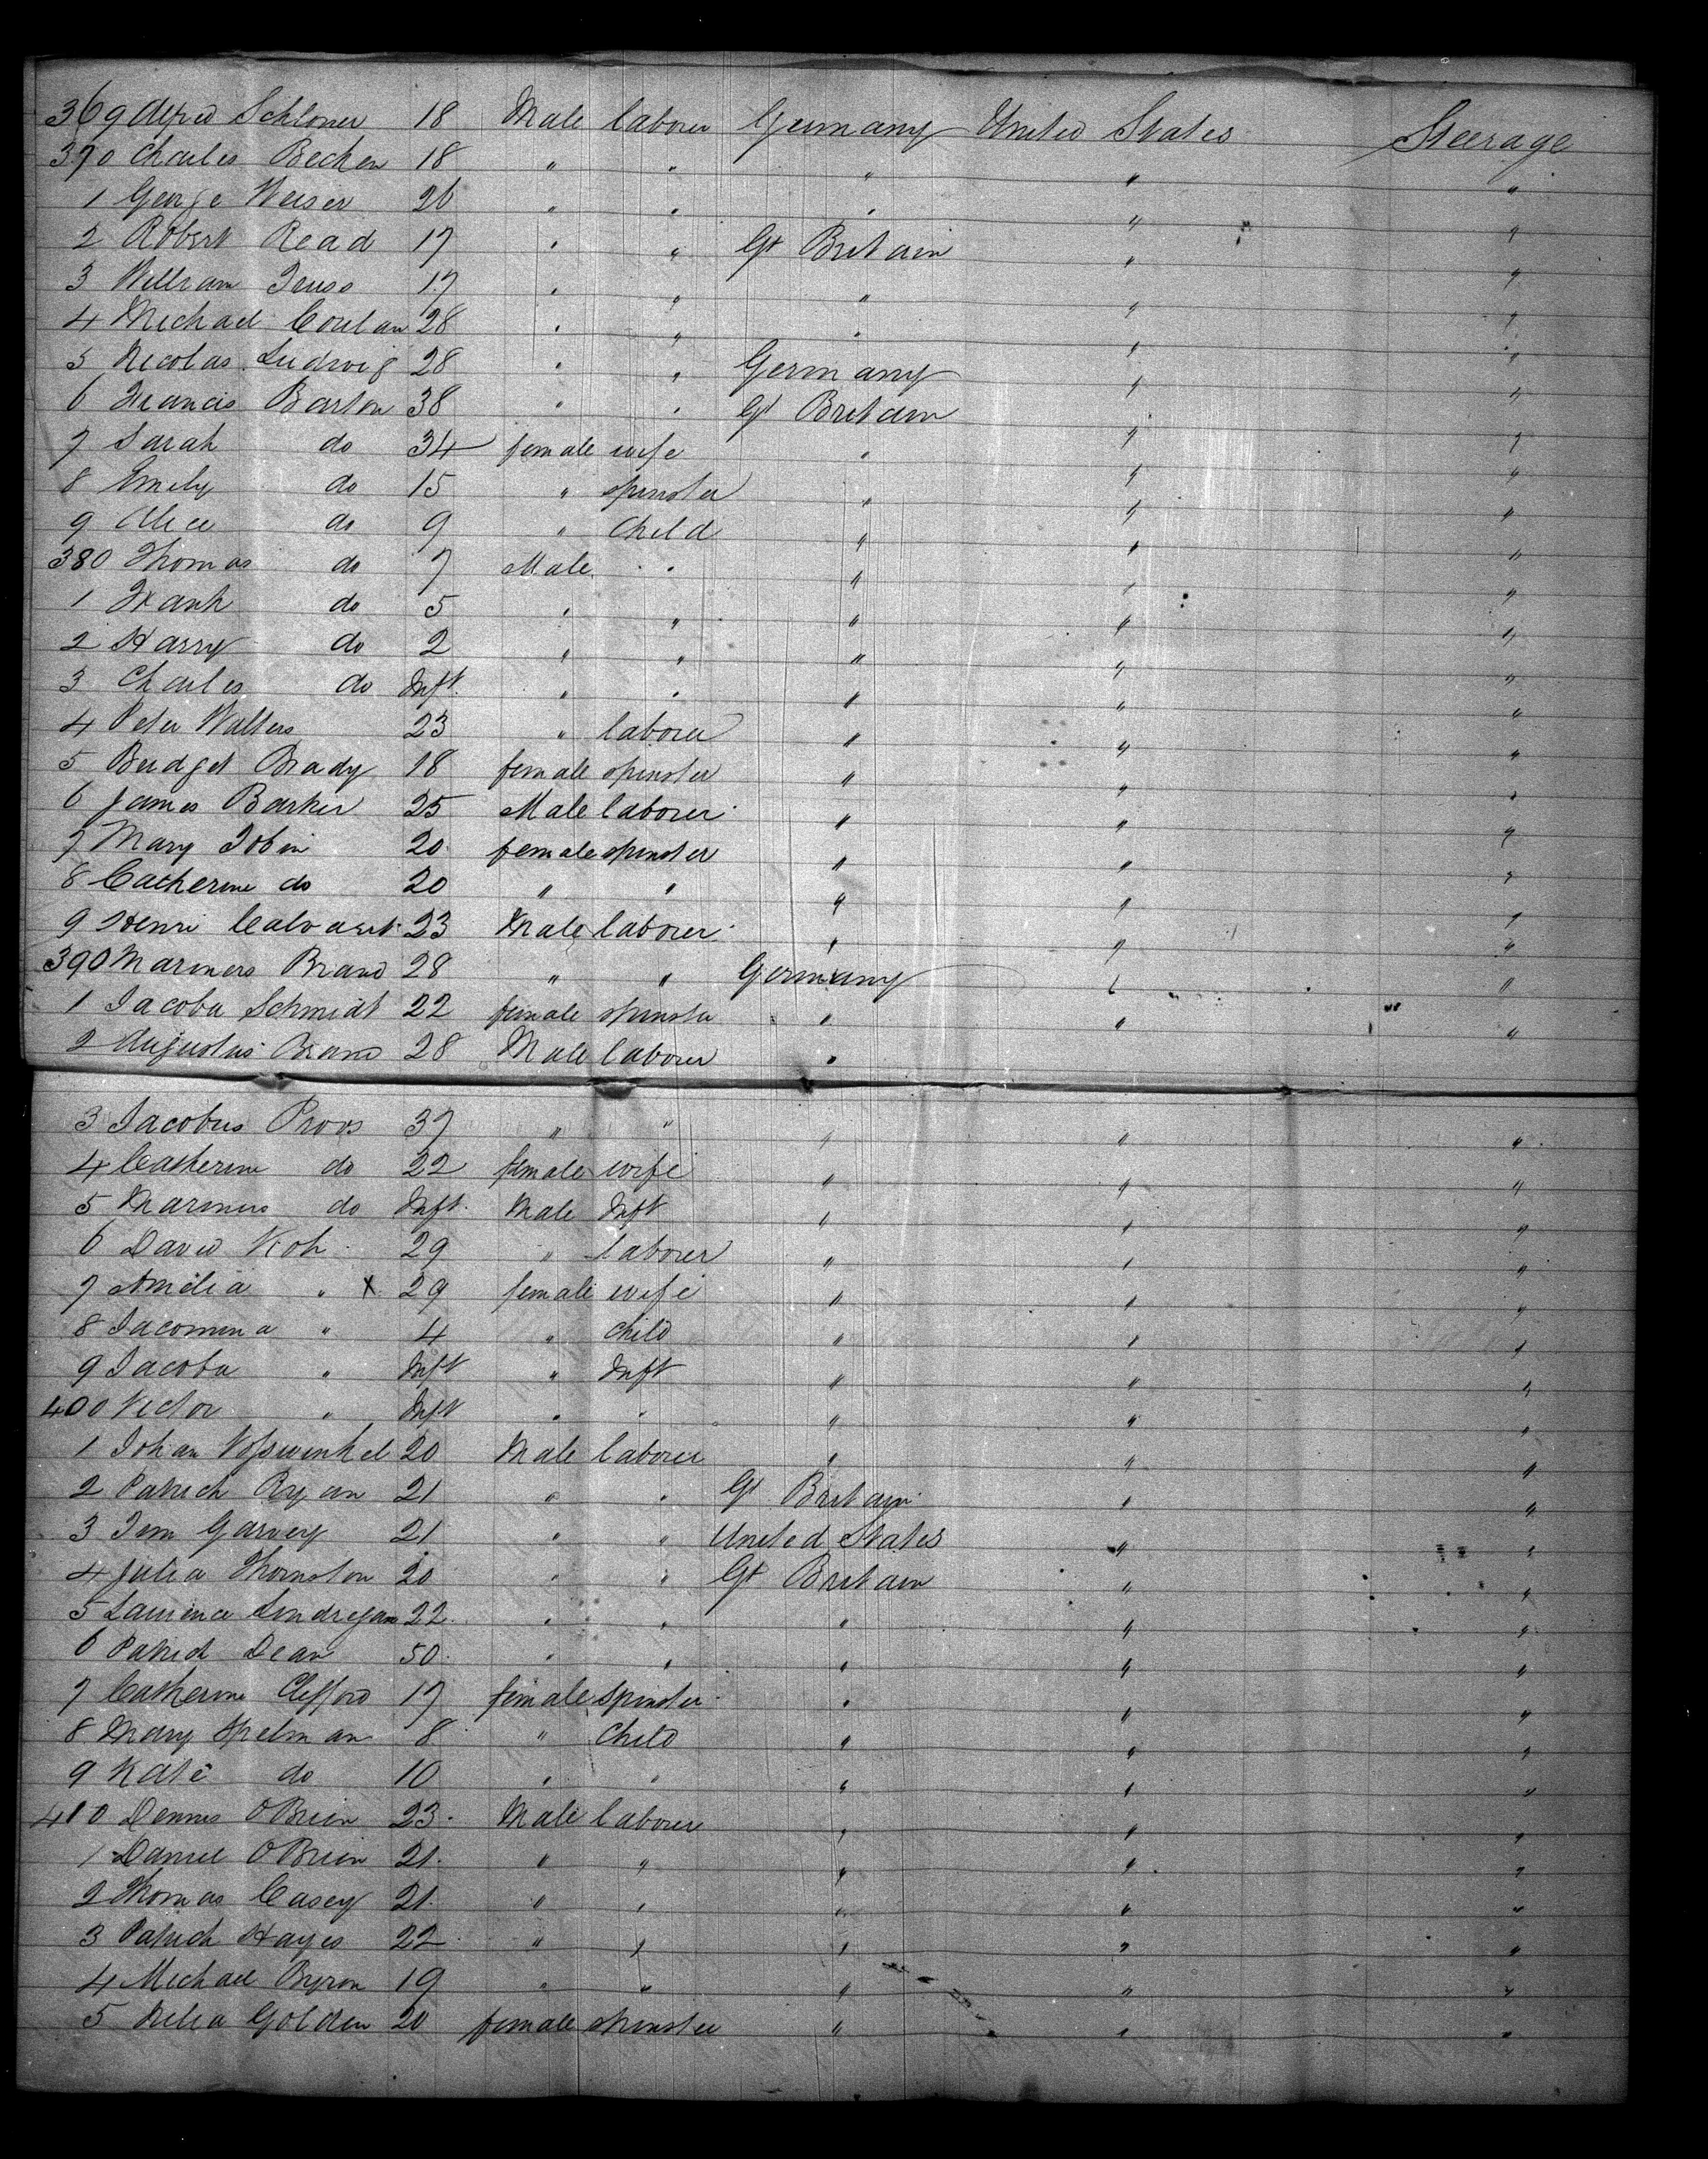 369 Alfred Schloner 18 Male laborer Germany United States Steerage
370 Charles Becken 18 " " " " "
1 George Weiser 26 " " " " "
2 Robert Read 17 " " Gt Britain " "
3 William Truss 17 " " " " "
4 Michael Conlan 28 " " " " "
5 Nicolas Ludwig 28 " " Germany " "
6 Francis Barton 38 " " Gt Britain " "
7 Sarah do 34 female wife " " "
8 Emily do 15 " spinster " " "
9 Alice do 9 " Child " " "
380 Thomas do 7 Male " " " "
1 Frank do 5 " " " " "
2 Harry do 2 " " " " "
3 Charles do Inft. " " " " "
4 Peter Walters 23 " laborer " " "
5 Bridget Brady 18 female spinster " " "
6 James Barker 25 Male laborer " " "
7 Mary Tobin 20 female spinster " " "
8 Catherine do 20 " " " " "
9 Henri Calvaert 23 Male laborer " " "
390 Marinus Brand 28 " " Germany " "
1 Jacoba Schmidt 22 female spinster " " "
2 Augustus Brand 28 Male laborer "
3 Jacobus Proos 37 " " " " "
4 Catherine do 22 female wife " " "
5 Marinus do Inft. Male Inft " " "
6 David Koh 29 " laborer " " "
7 Amelia " X 29 female wife " " "
8 Jacomina " 4 " child " " "
9 Jacoba " Inft " Inft " " "
400 Victor " Inft " " " " "
1 Johan Vosswinkel 20 Male laborer " " "
2 Patrick Ryan 21 " " Gt Britain " "
3 Tom Garvey 21 " " United States " "
4 Julia Thornston 20 " " Gt Britain " "
5 Laurence Londregan 22 " " " " "
6 Patrick Dean 50 " " " " "
7 Catherine Clifford 17 female spinster " " "
8 Mary Spelman 8 " Child " " "
9 Kate do 10 " " " " "
410 Dennis OBrien 23 Male laborer " " "
1 Daniel OBrien 21 " " " " "
2 Thomas Casey 21 " " " " "
3 Patrick Hayes 22 " " " " "
4 Michael Byron 19 " " " " "
5 Delia Golden 20 female spinster " " "